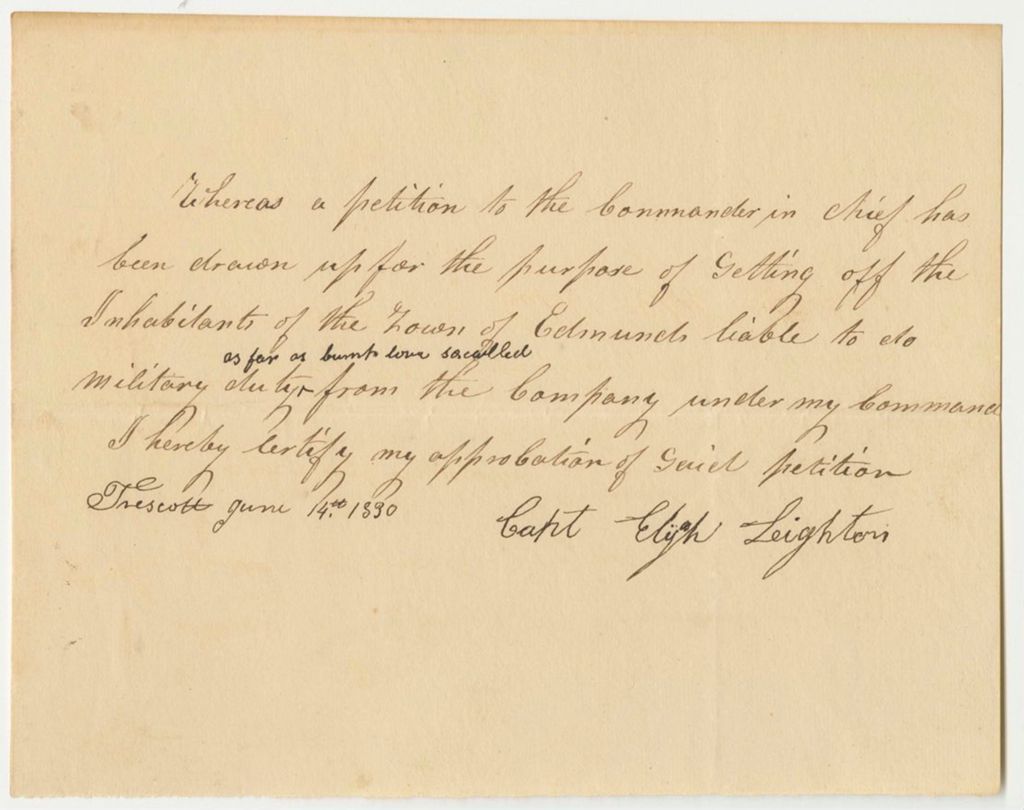 Whereas a petition to the Commander in chief has
been drawn up for the purpose of Getting off the
Inhabitants of the Town of Edmunds liable to do
as far as burnt cove socalled
military duty from the Company under my Command
I hereby certify my approbation of Said petition
Trescott June 14th 1830 Capt Elijah Leighton